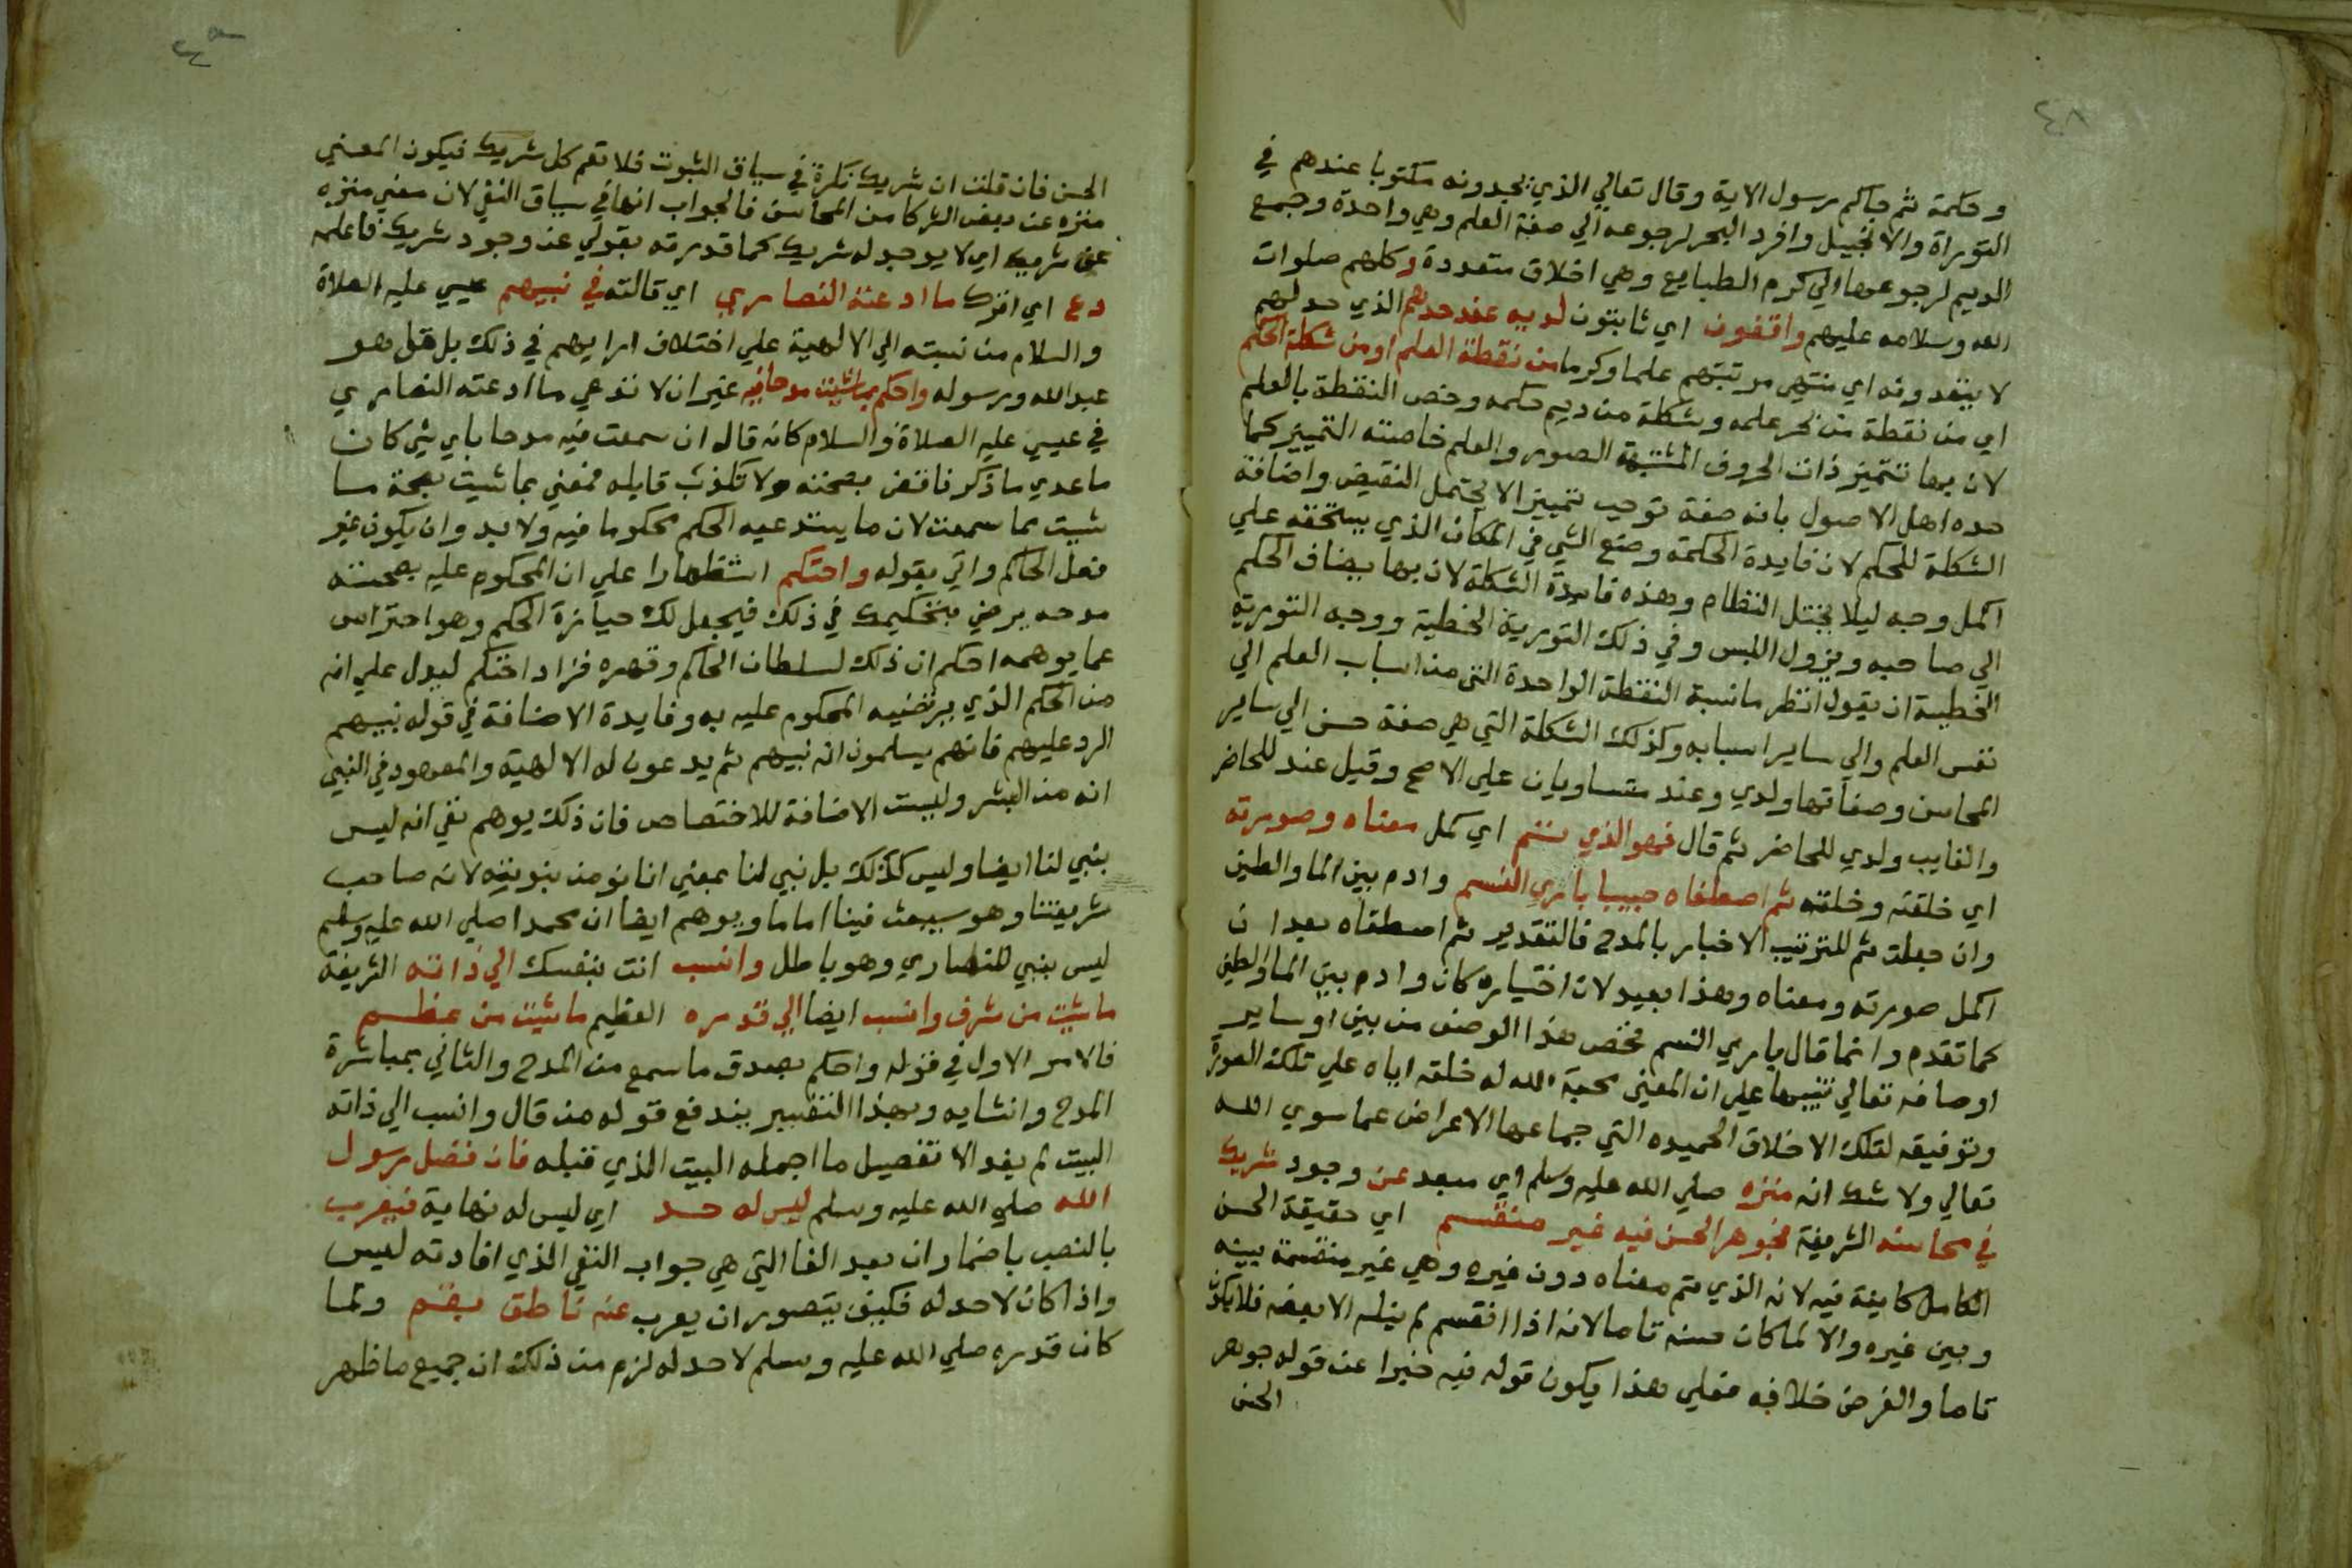 ٤٨
وحكمة ثم جاكم رسول الاية وقال تعالي الذي يجدونه مكتوبا عندهم في
التوراة والانجيل وافرد البحر لرجوعه الي صفة العلم وهي واحدة وجمع
الديم لرجوعها الي كرم الطبايع وهي اخلاق متعددة وكلهم صلوات
الله وسلامه عليهم واقفون اي ثابتون لديه عند حدهم الذي حد لهم
لا يتعدونه اي منتهي مرتبتهم علما وكرما من نقطة العلم او من شكلة الحكم
اي من نقطة من بحر علمه وشكلة من ديم حكمه وخص النقطة بالعلم
لان بها تتميز ذات الحروف المشتبهة الصور والعلم خاصته التمييز كما
حده اهل الاصول بانه صفة توجب تمييزا لا يحتمل النقيض واضافة
الشكلة للحكم لان فايدة الحكمة وضع الشي في المكان الذي يستحقه علي
اكمل وجه ليلا يختل النظام وهذه فايدة الشكلة لان بها يضاف الحكم
الي صاحبه ويزول اللبس وفي ذلك التورية الخطية ووجه التورية
الخطية ان يقول انظر ما نسبة النقطة الواحدة التي من اسباب العلم الي
نفس العلم والي ساير اسبابه وكذلك الشكلة التي هي صفة حسن الي ساير
المحاسن وصفاتها ولدي وعند متساويان علي الاصح وقيل عند للحاضر
والغايب ولدي للحاضر ثم قال فهو الذي تم اي كمل معناه وصورته
اي خلقته وخلقه ثم اصطفاه حبيبا باري النسم وادم بين الما والطين
وان جعلت ثم للترتيب الاخبار بالمدح فالتقدير ثم اصطفاه بعد ان
اكمل صورته ومعناه وهذا بعيد لان اختياره كان وادم بين الما والطين
كما تقدم وانما قال باري النسم فخص هذا الوصف من بين اوساير
اوصافه تعالي تنبيها علي ان المعني محبة الله له خلقه اياه علي تلك الصورة
وتوفيقه لتلك الاخلاق الحميده التي جماعها الاعراض عما سوي الله
تعالي ولا شك انه منزه صلي الله عليه وسلم اي مبعد عن وجود شريك
في محاسنه الشريفة فجوهر الحسن فيه غير منقسم اي حقيقة الحسن
الكامل كاينة فيه لانه الذي تم معناه دون غيره وهي غير منقسمة بينه
وبين غيره والا لما كان حسنه تاما لانه اذا انقسم لم ينله الا بعضه فلا يكون
تاما والغرض خلافه فعلي هذا يكون قوله فيه خبرا عن قوله جوهر
الحسن
الحسن فان قلت ان شريك نكرة في سياق الثبوت فلا تعم كل شريك فيكون المعني
منزه عن بعض الشركا من المحاسن فالجواب انها في سياق النفي لان معني منزه
عن شريك اي لا يوجد له شريك كما قدرته بقولي عن وجود شريك فاعلمه
دع اي اترك ما ادعته النصاري اي قالته في نبيهم عيسي عليه الصلاة
والسلام من نسبته الي الالهية علي اختلاف ارايهم في ذلك بل قل هو
عبد الله ورسوله واحكم بما شيت مدحا فيه غير ان لا تدعي ما ادعته النصاري
في عيسي عليه الصلاة والسلام كانه قال ان سمعت فيه مدحا باي شي كان
ما عدي ما ذكرنا فاقض بصحته ولا تكذب قايله فمعني بما شيت بصحة ما
شيت مما سمعت لان ما يستدعيه الحكم محكوما فيه ولا بد وان يكون غير
فعل الحاكم واتي بقوله واحتكم استظهارا علي ان المحكوم عليه بصحته
مدحه يرضي بتحكيمك في ذلك فيجعل لك حيازة الحكم وهو احتراس
عما يوهمه احكم ان ذلك لسلطان الحاكم وقهره فزاد احتكم ليدل علي انه
من الحكم الذي يرتضيه المحكوم عليه به وفايدة الاضافة في قوله نبيهم
الرد عليهم فانهم يسلمون انه نبيهم ثم يدعون له الالهية والمعهود في النبي
انه من البشر وليست الاضافة للاختصاص فان ذلك يوهم نفي انه ليس
بنبي لنا ايضا وليس كذلك بل نبي لنا بمعني انا نومن بنبوته لانه صاحب
شريعتنا وهو سيبعث فينا اماما ويوهم ايضا ان محمدا صلي الله عليه وسلم
ليس بنبي للنصاري وهو باطل وانسب انت بنفسك الي ذاته الشريفة
ما شيت من شرف وانسب ايضا الي قدره العظيم ما شيت من عظم
فالامر الاول في قوله واحكم بصدق ما سمع من المدح والثاني بمباشرة
المدح وانشايه وبهذا التفسير يندفع قوله من قال وانسب الي ذاته
البيت لم يفد الا تفصيل ما اجمله البيت الذي قبله فان فضل رسول
الله صلي الله عليه وسلم ليس له حد اي ليس له نهاية فيعرب
بالنصب باضمار ان بعد الفا التي هي جواب النفي الذي افادته ليس
واذا كان لا حد له فكيف يتصور ان يعرب عنه ناطق بفم ولما
كان قدره صلي الله عليه وسلم لا حد له لزم من ذلك ان جميع ما ظهر